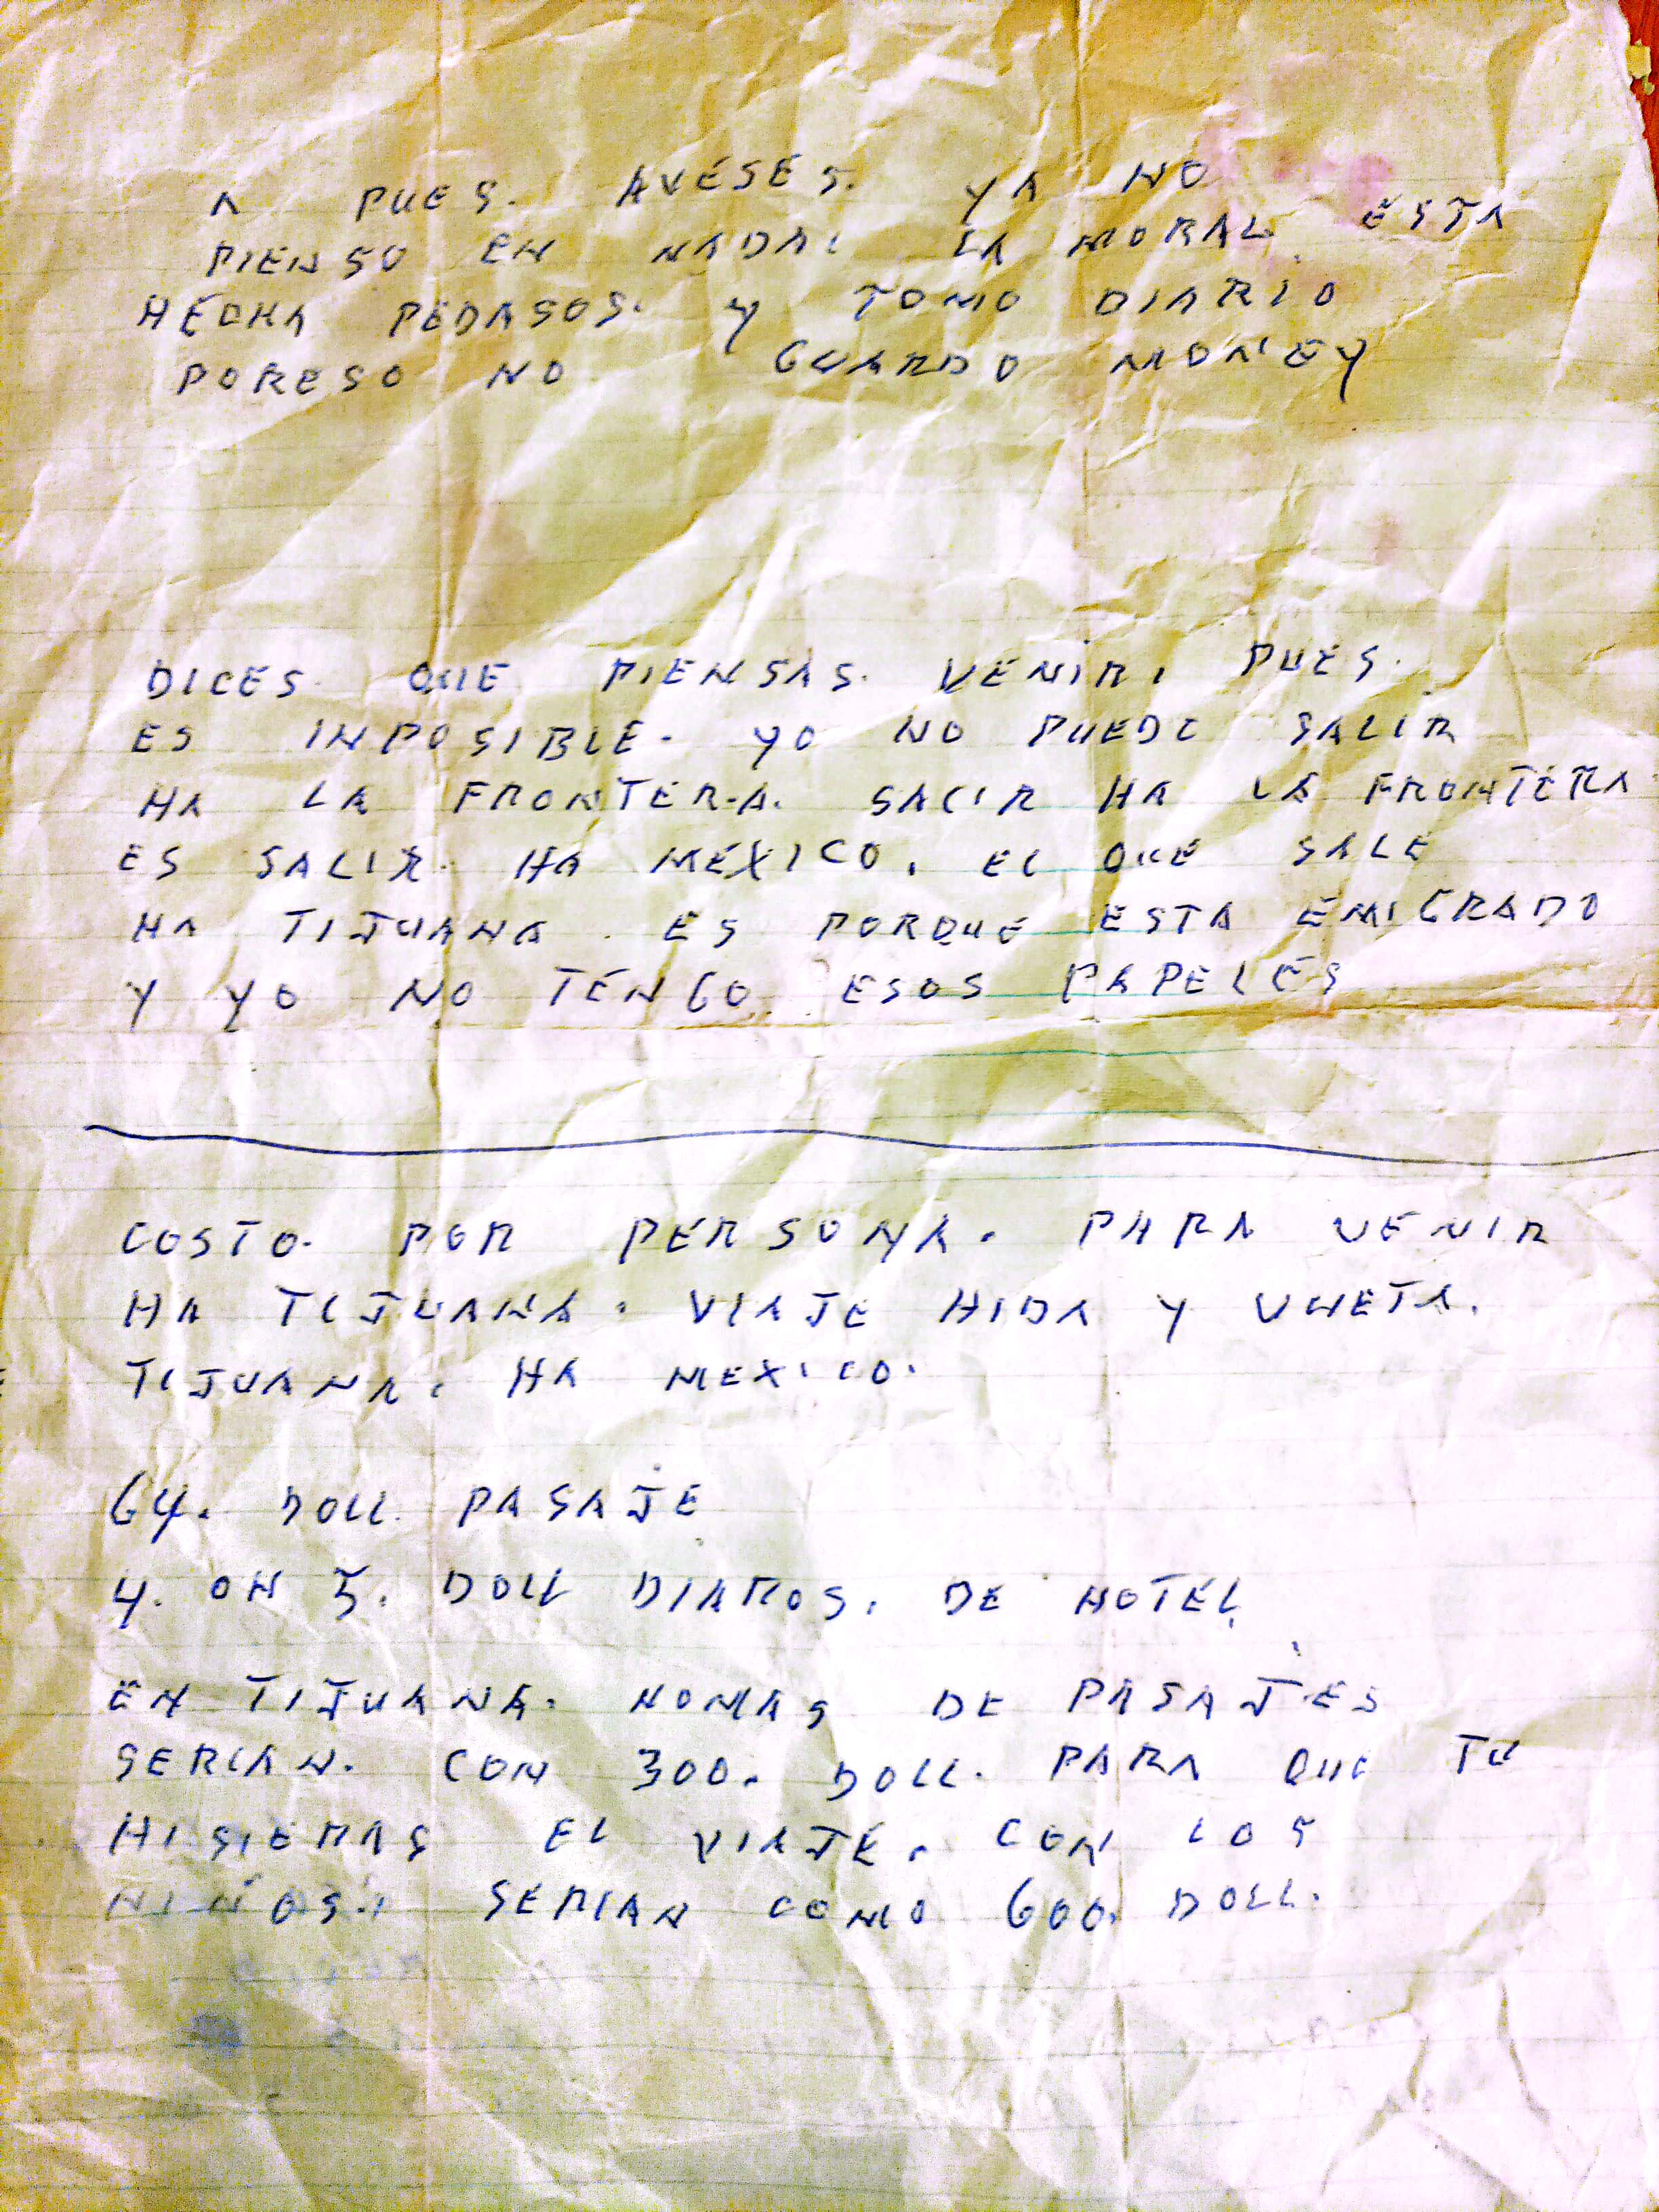 A PUES. AVESES. YA NO
PIENSO EN NADA. LA MORAL ESTA
HECHA PEDASOS. Y TOMO DIARIO
PORESO NO GUARDO MONEY
DICES QUE PIENSAS. VENIR. PUES.
ES INPOSIBLE. YO NO PUEDO SALIR
HA LA FRONTERA. SALIR HA LA FRONTERA
ES SALIR HA MEXICO. EL QUE SALE
HA TIJUANA. ES PORQUE ESTA EMIGRADO
Y YO NO TENGO ESOS PAPELES
COSTO. POR PERSONA. PARA VENIR
HA TIJUANA. VIAJE HIDA Y VUETA.
TIJUANA. HA MEXICO.
64. DOLL. PASAJE
4. OH 5. DOLL DIAROS. DE HOTEL
EN TIJUANA. NOMAS DE PASAJES
SERIAN. CON 300. DOLL. PARA QUE TU
HISIERAS EL VIAJE. CON LOS
NIÑOS. SERIAN COMO 600. DOLL.